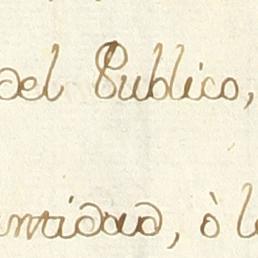 del Publico,
antidad, ò l